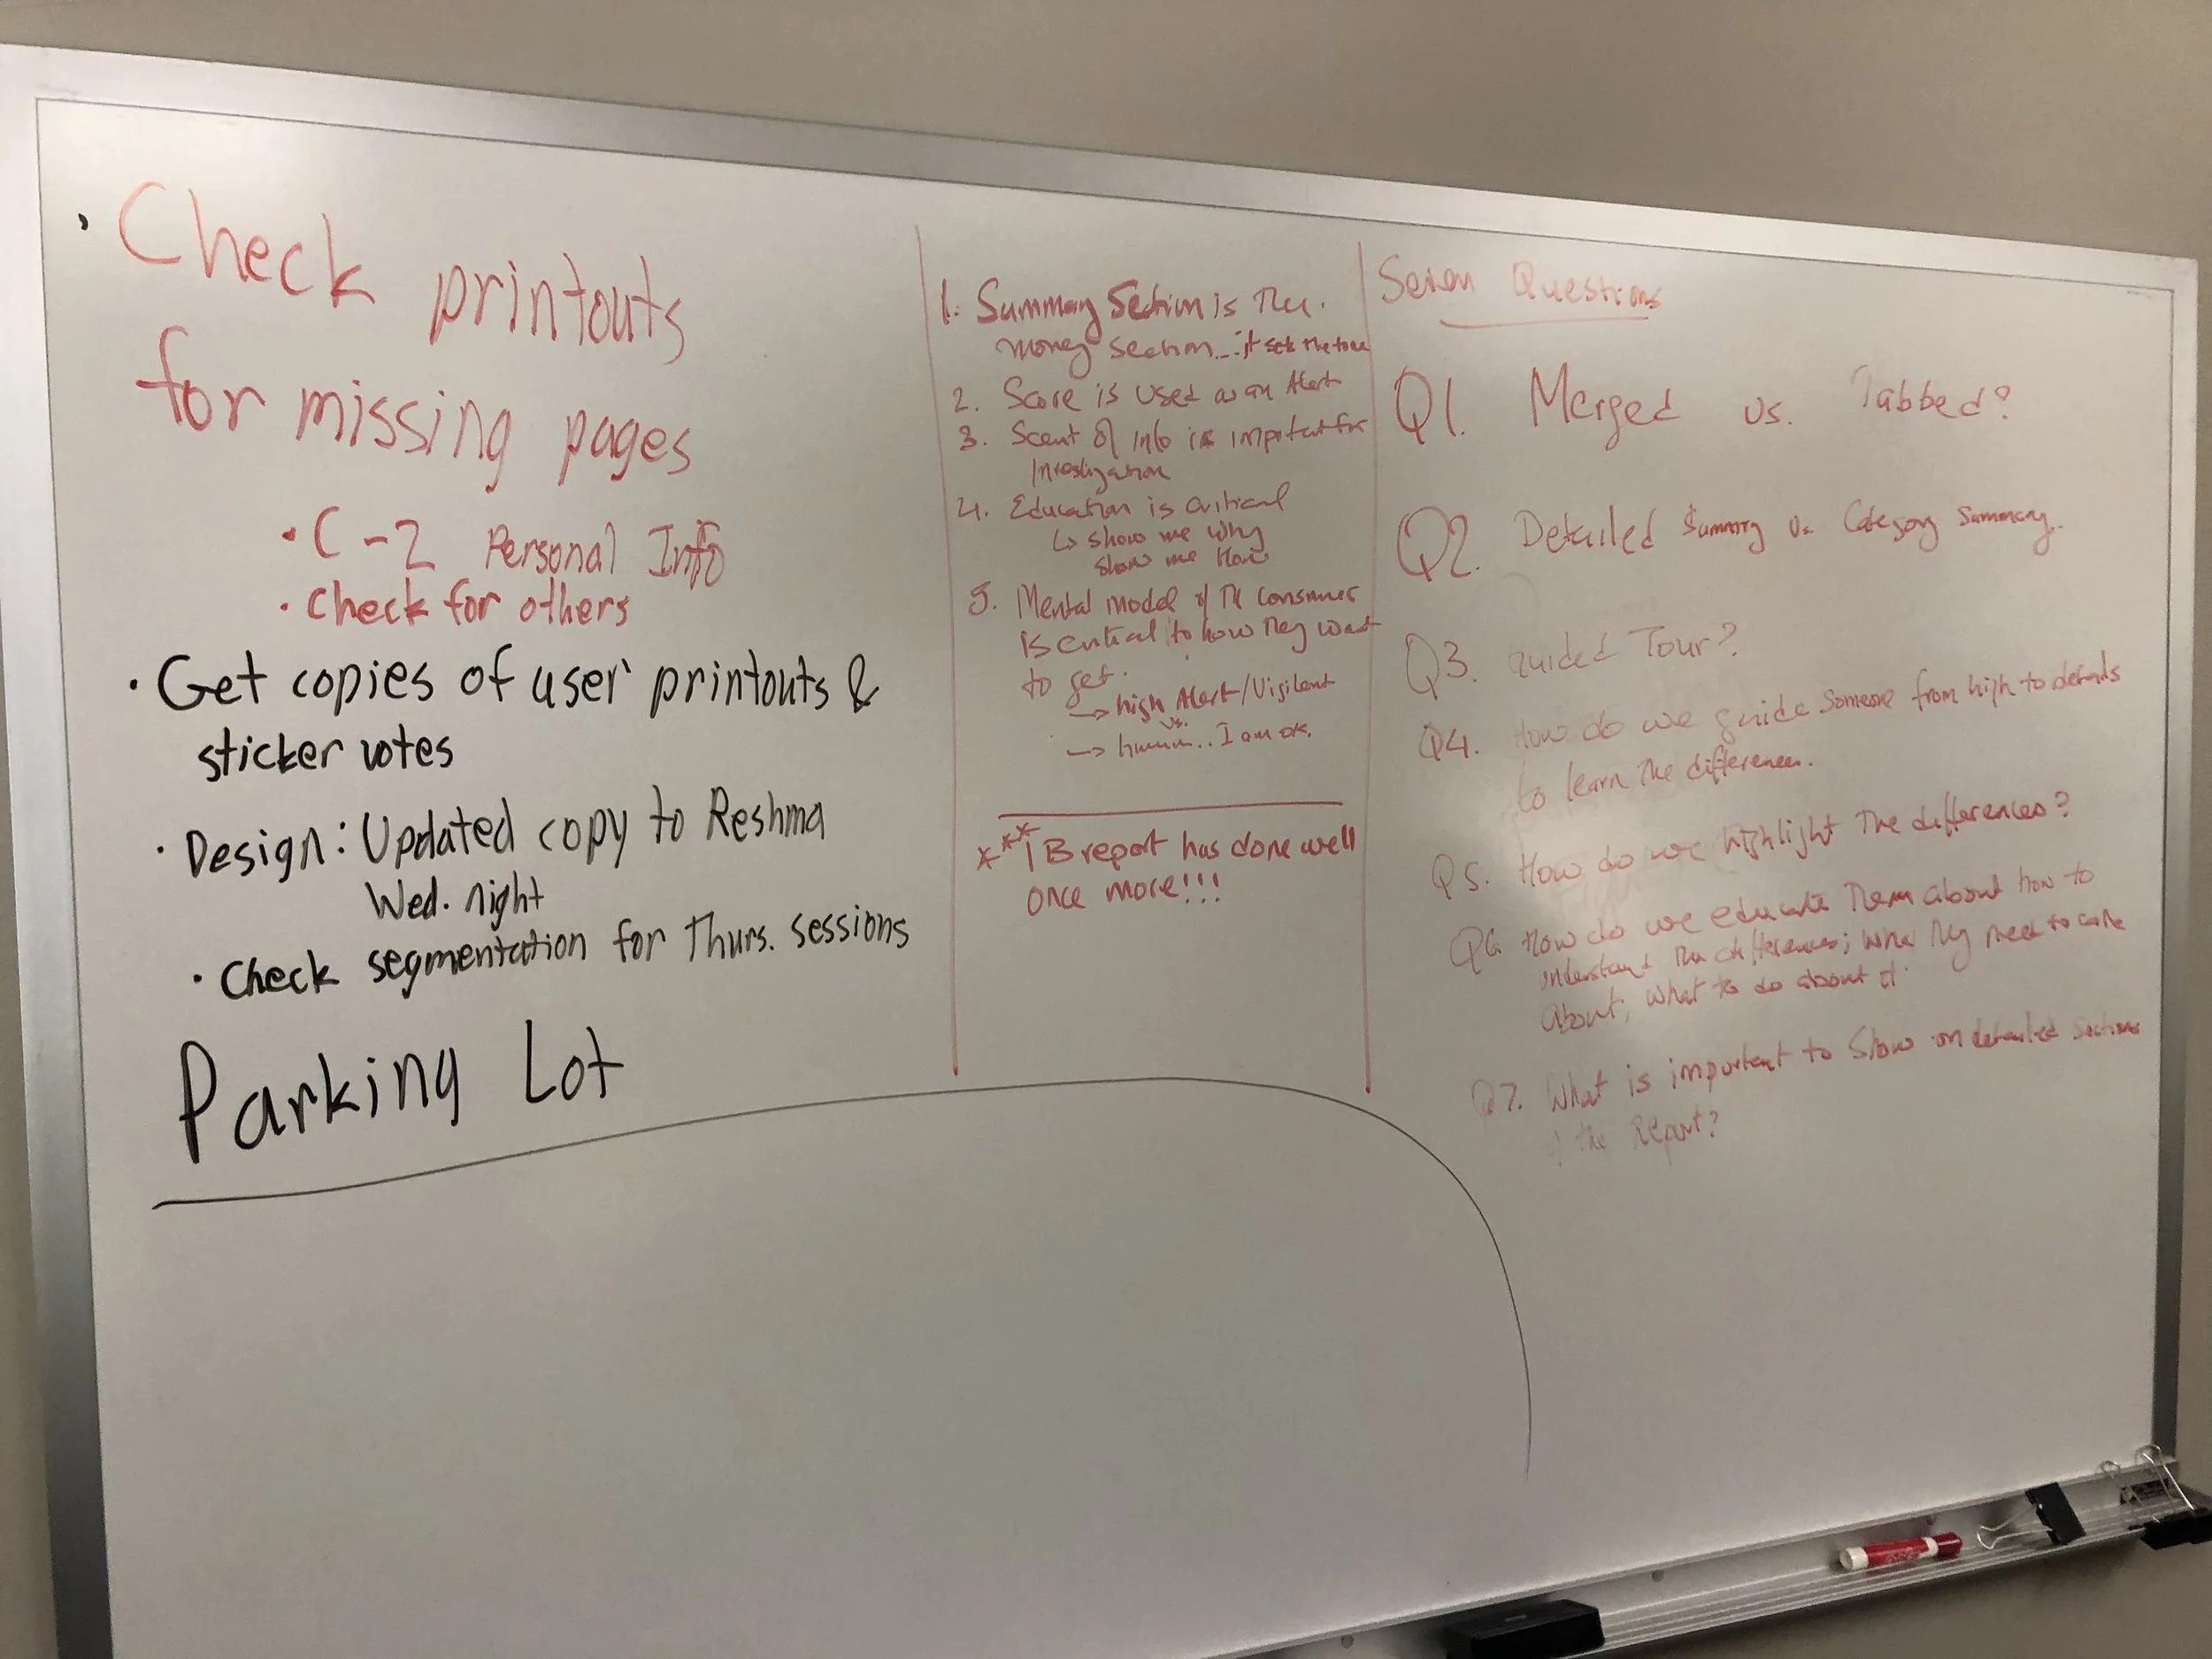 • Check printouts
for missing pages
• C-2 Personal Info
• Check for others
• Get copies of user printouts &
sticker votes
• Design: Updated copy to Reshma
Wed. night
• Check segmentation for Thurs. sessions
Parking Lot
1. Summary Section is The
money section... it sets the tone
2. Score is used as an Alert
3. Scent of info is important for
Investigation
4. Education is critical
↳ show me why
show me how
5. Mental model of the consumer
is critical to how they want
to get.
→ high Alert/Vigilent
vs.
→ hmmm.. I am ok.
*** 1B report has done well
once more!!!
Seven Questions
Q1. Merged vs. Tabbed?
Q2. Detailed Summary vs. Category Summary.
Q3. Guided Tour?
Q4. How do we guide someone from high to details
to learn the differences.
Q5. How do we highlight The differences?
Q6. How do we educate Them about how to
understand the differences; what they need to care
about; what to do about it.
Q7. What is important to show on detailed sections
of the Report?